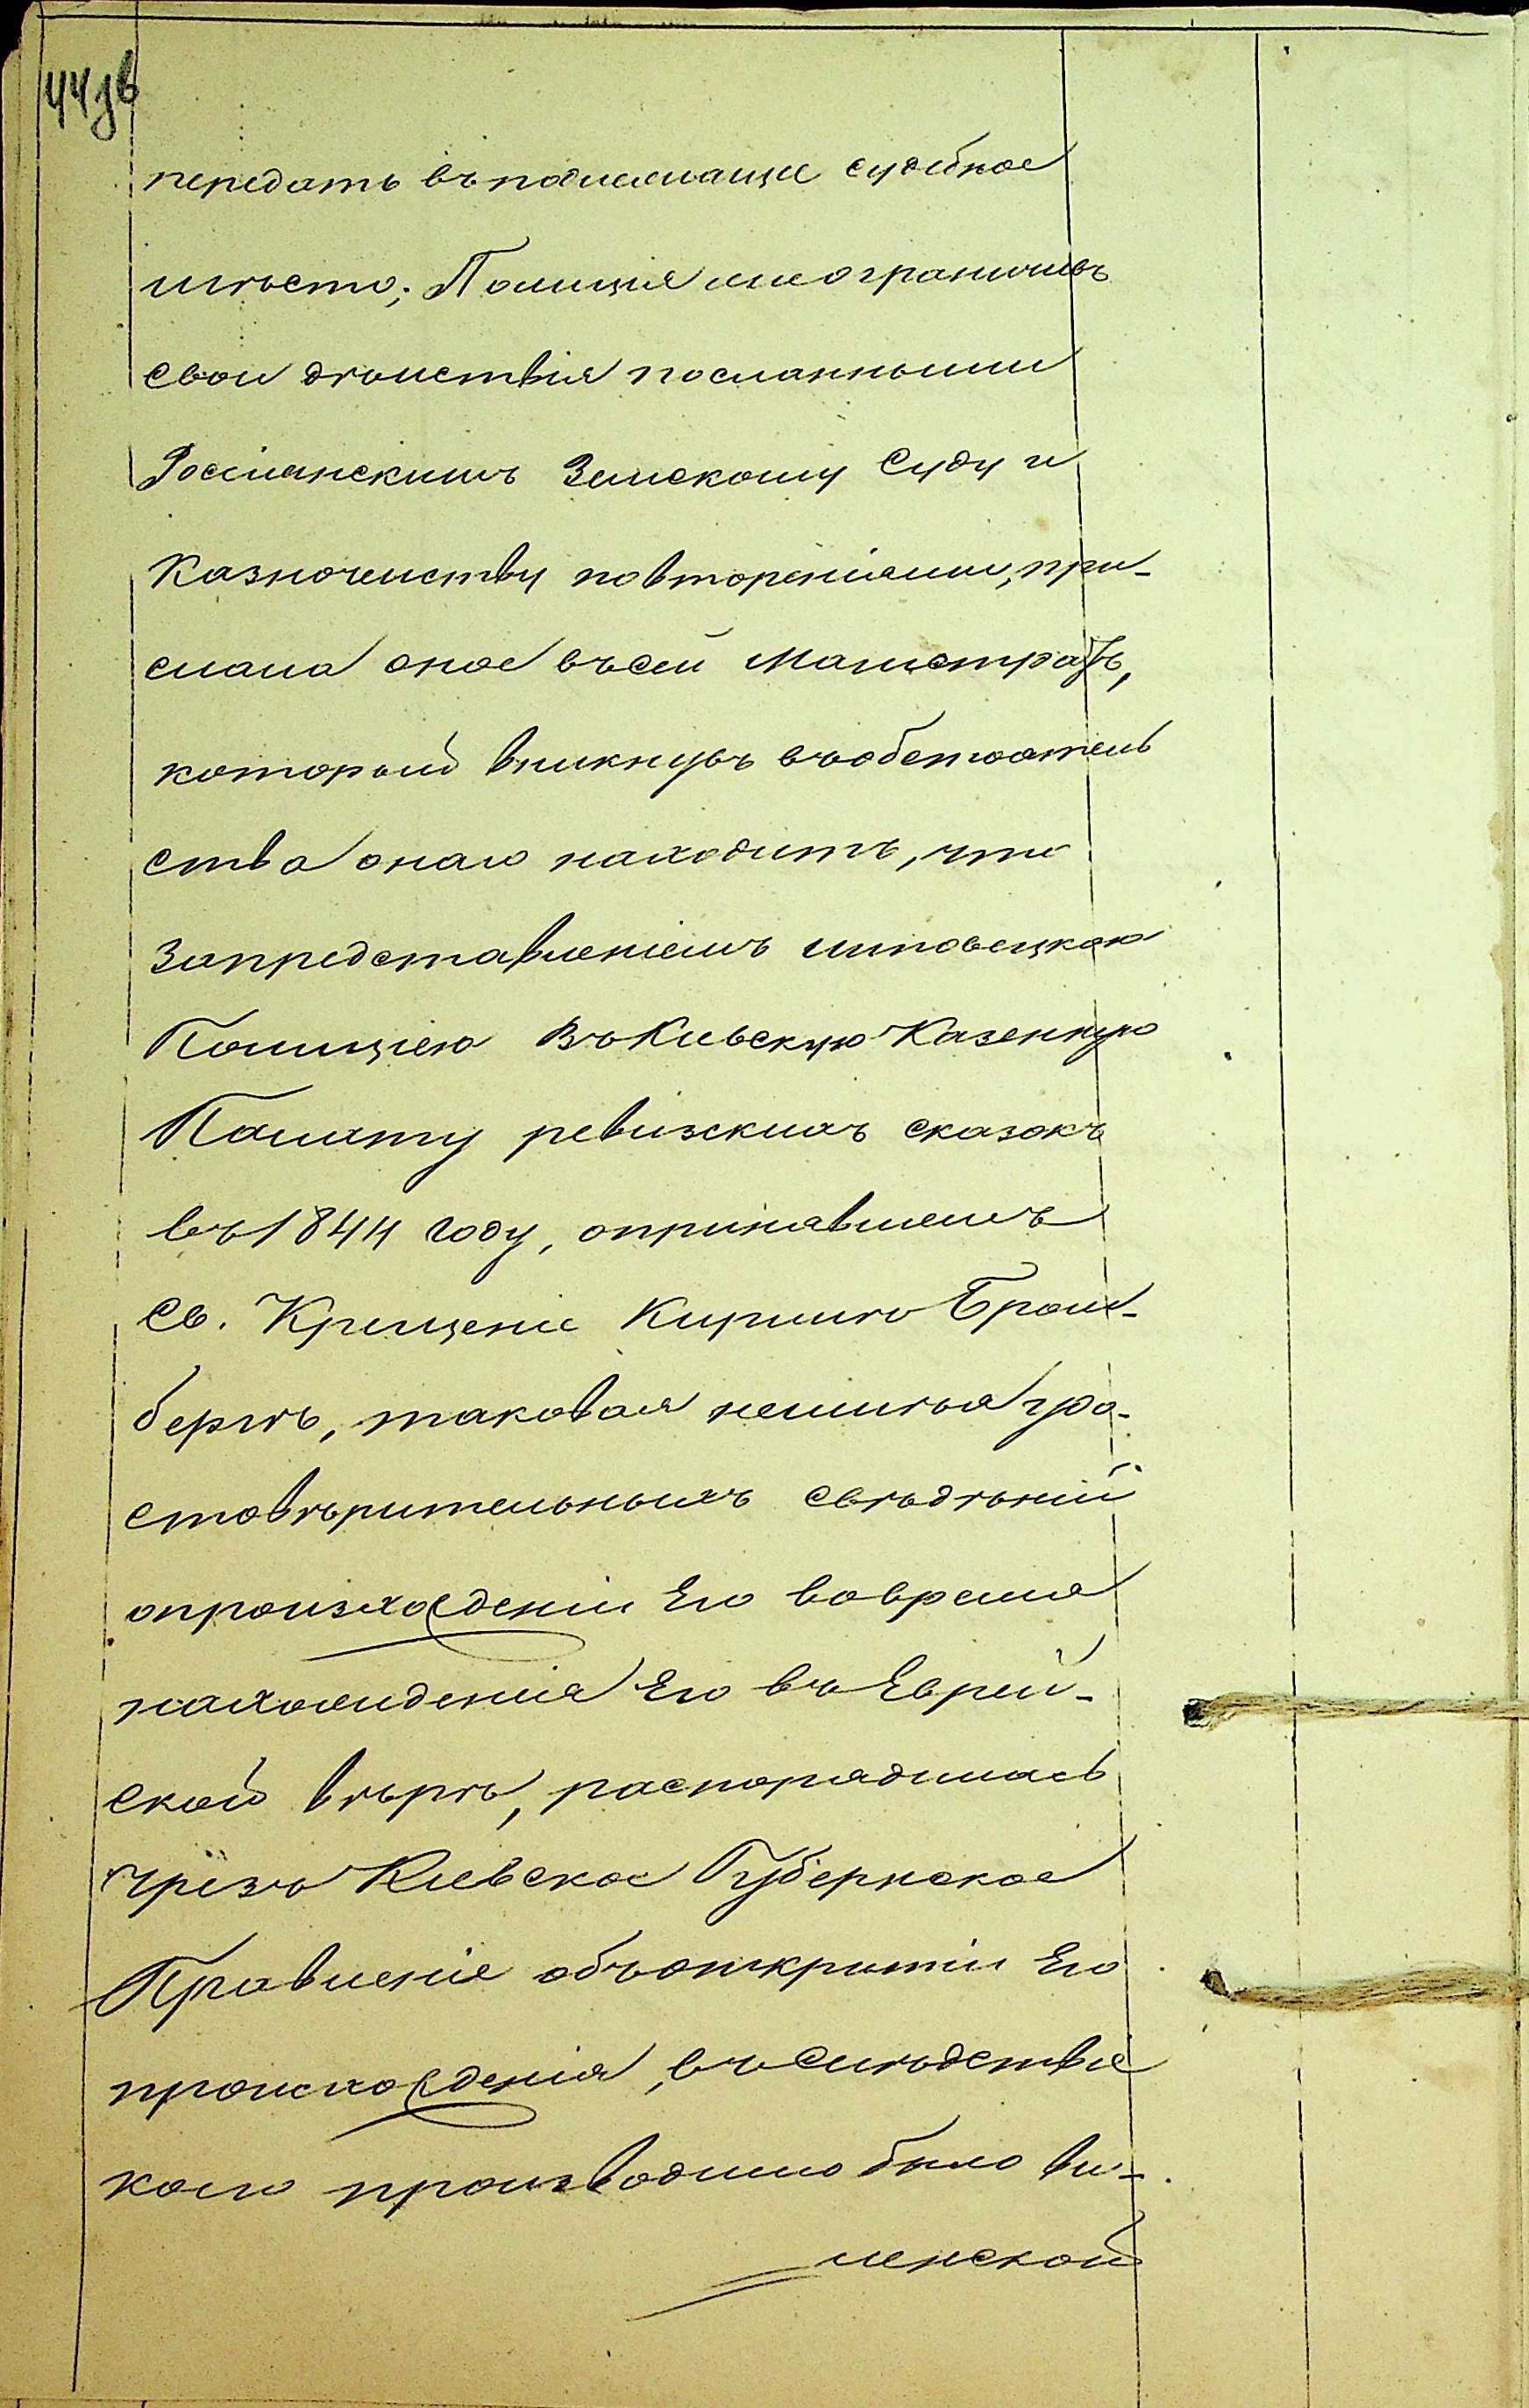 44зв
передать въ подлежаще судебное
мѣсто; Полиція же ограничивъ
свои дѣйствія посланными
Россіянскимъ Земскому Суду и
Казначейству повтореніями, при-
слала оное въ сей Магистратъ,
который вникнувъ въ обстоятель
ства онаго находитъ, что
за представленіемъ Липовецкою
Полиціею въ Кіевскую Казенную
Палату ревизскихъ сказокъ
въ 1844 году, о принявшемъ
Св. Крещеніе Кирилѣ Бром-
бергѣ, таковая не имѣя удо-
стовѣрительныхъ свѣдѣній
о произхожденіи Его во время
нахожденія Его въ Еврей-
ской вѣрѣ, распорядилась
чрезъ Кіевское Губернское
Правленіе объ открытіи Его
происхожденія, въ слѣдствіе
коего производимо было ви-
ленской